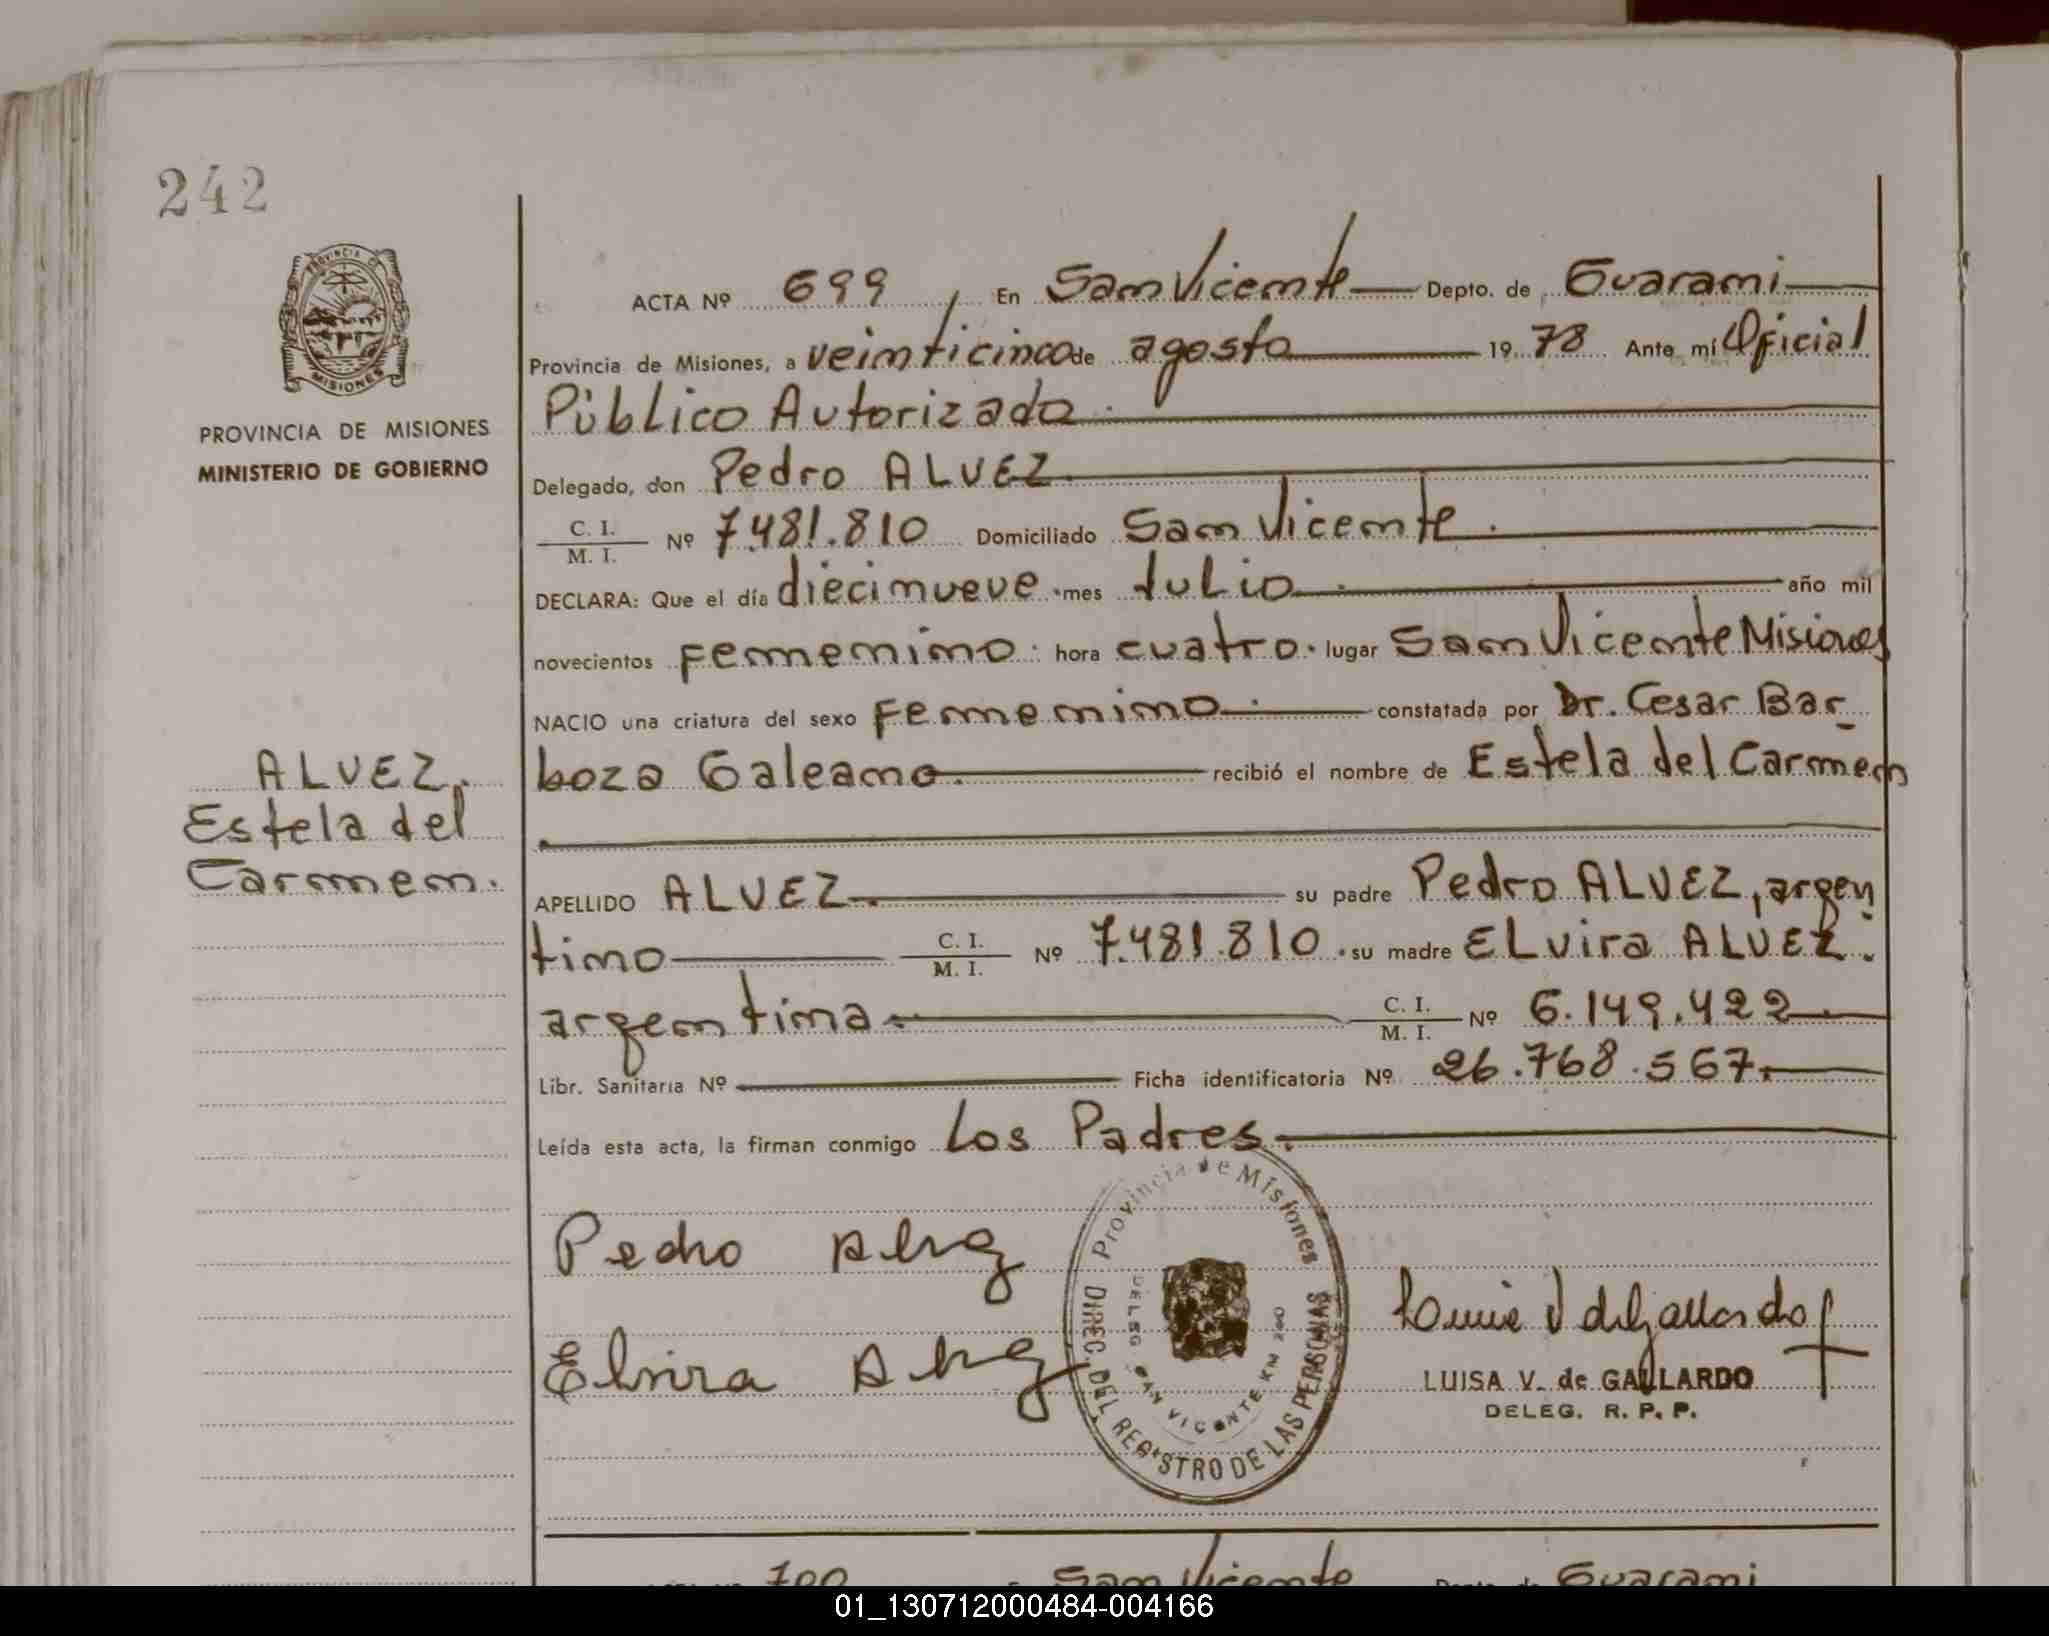 242
PROVINCIA DE MISIONES
PROVINCIA DE MISIONES
MINISTERIO DE GOBIERNO
ALVEZ.
Estela del
Carmen.
ACTA Nº 699, En San Vicente Depto. de Guarani
Provincia de Misiones, a veinticinco de agosto 19 78 Ante mí Oficial
Público Autorizado.
Delegado, don Pedro ALVEZ
C. I.
M. I. Nº 7.481.810 Domiciliado San Vicente.
DECLARA: Que el día diecinueve. mes Julio. año mil
novecientos femenino. hora cuatro. lugar San Vicente Misiones
NACIO una criatura del sexo femenino. constatada por Dr. Cesar Bar_
boza Galeano. recibió el nombre de Estela del Carmen
APELLIDO ALVEZ. su padre Pedro ALVEZ, argen
tino C. I.
M. I. Nº 7.481.810. su madre ELvira ALVEZ.
argentina. C. I.
M. I. Nº 6.149.422.
Libr. Sanitaria Nº Ficha identificatoria Nº 26.768.567.
Leída esta acta, la firman conmigo Los Padres.
Pedro Alvez
Elvira Alvez
Provincia de Misiones
DIREC. DEL REGISTRO DE LAS PERSONAS
DELEG. SAN VICENTE KM 260
Luisa V de Gallardo
LUISA V. de GALLARDO
DELEG. R. P. P.
700 San Vicente Depto. de Guarani
01_130712000484-004166